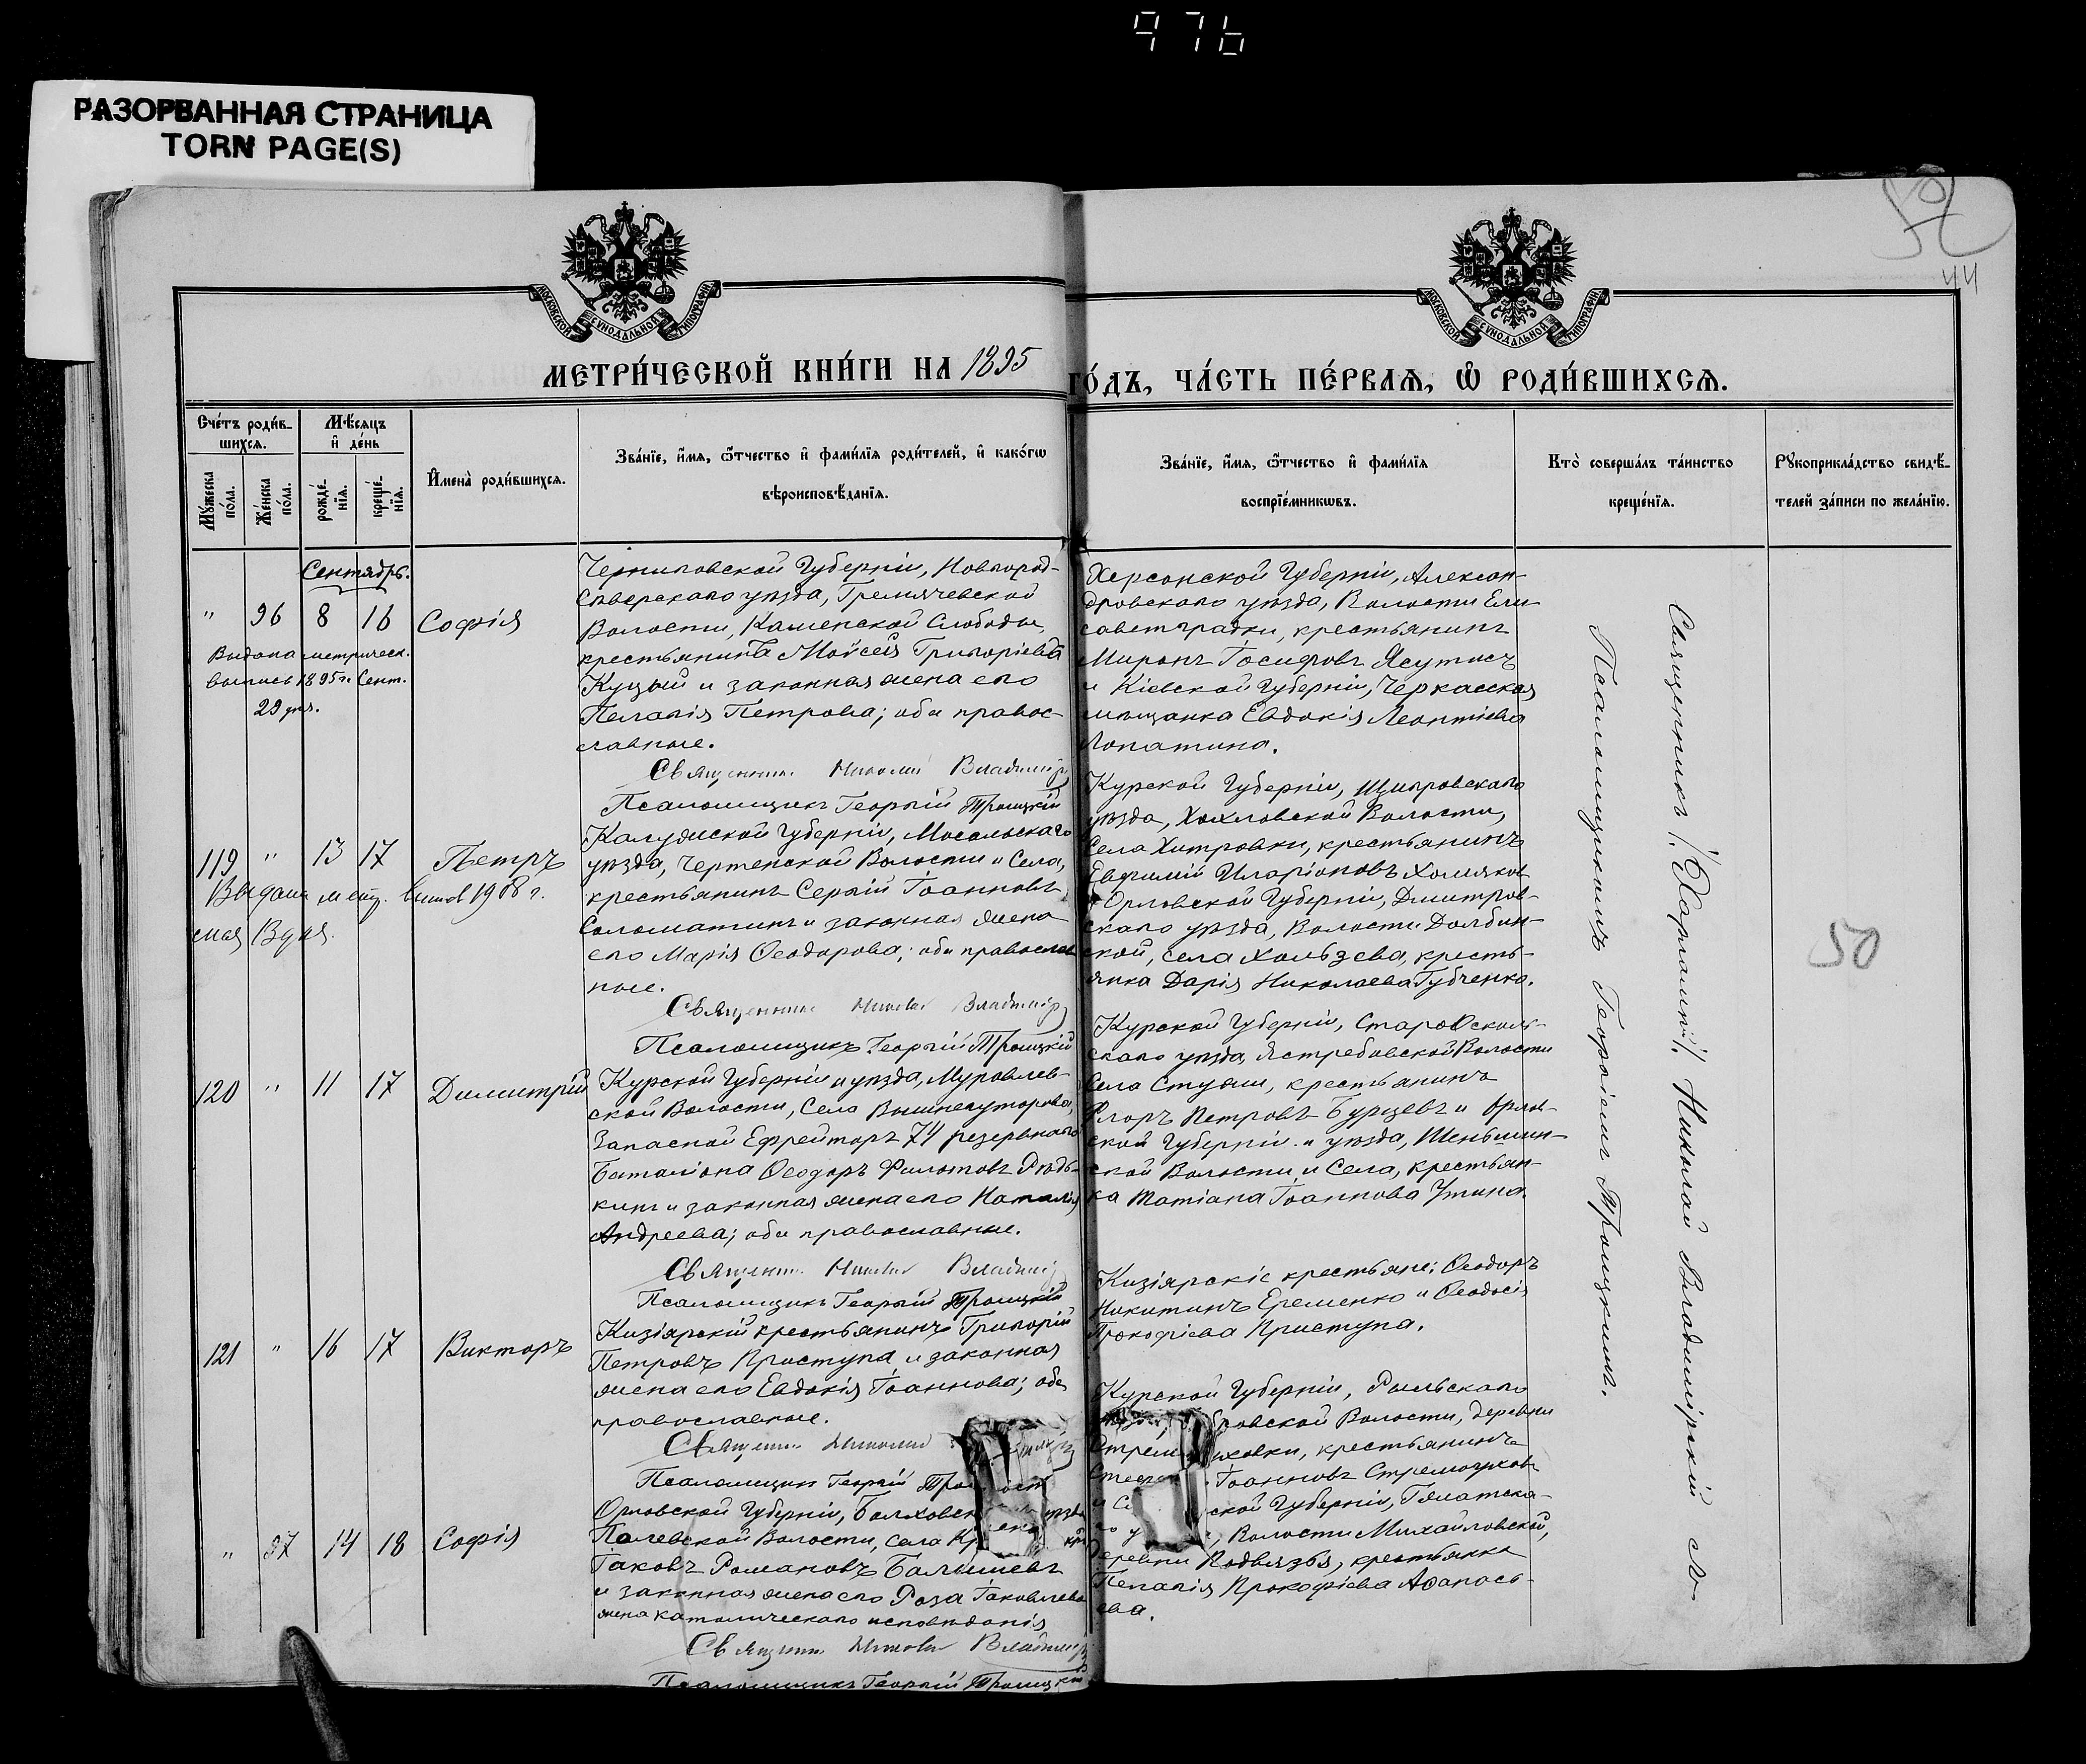 976
РАЗОРВАННАЯ СТРАНИЦА
TORN PAGE(S)
50
44
МОСКОВСКОЙ СУНОДАЛЬНОЙ ТИПОГРАФІИ
МОСКОВСКОЙ СУНОДАЛЬНОЙ ТИПОГРАФІИ
МЕТРИ́ЧЕСКОЙ КНИ́ГИ НА 1895 ГО́ДЪ, ЧА́СТЬ ПЕ́РВАѦ, Ѡ҆ РОДИ́ВШИХСѦ.
Сче́тъ роди́в-
шихсѧ.
Мѣ́сѧцъ
и҆ де́нь
Мꙋ́жеска
по́ла.
Же́нска
по́ла.
рожде́-
нїѧ.
креще́-
нїѧ.
И҆мена̀ роди́вшихсѧ.
Зва́нїе, и҆́мѧ, ѻ҆́тчество и҆ фами́лїѧ роди́телей, и҆ како́гѡ
вѣроисповѣ́данїѧ.
Зва́нїе, и҆́мѧ, ѻ҆́тчество и҆ фами́лїѧ
воспрїе́мникѡвъ.
Кто̀ соверша́лъ та́инство
креще́нїѧ.
Рꙋкоприкла́дство свидѣ́-
телей за́писи по жела́нїю.
Сентябрь.
" 96 8 16 Софія
Выдана метрическ.
выпись 1895 г. Сент.
29 дня.
Черниговской Губерніи, Новгород-
Сѣверскаго уѣзда, Гремячевской
Волости, Каменской Слободы,
крестьянина Моѵсей Григоріевъ
Куцый и законная жена его
Пелагія Петрова; оба правос-
лавные.
Священникъ Николай Владимір
Псаломщикъ Георгій Троицкій
Херсонской Губерніи, Алексан-
дровскаго уѣзда, Волости Ели-
саветградки, крестьянинъ
Миронъ Іосифовъ Ясутисъ
и Кіевской Губерніи, Черкасская
мѣщанка Евдокія Леонтіева
Лопатина.
119 " 13 17 Петръ
Выдана метр. выпись 1908 г.
мая 3 дня.
Калужской Губерніи, Мосальскаго
уѣзда, Чертенской Волости и Села,
крестьянинъ Сергій Іоанновъ
Соломатинъ и законная жена
его Марія Ѳеодорова; оба православ
ные.
Священникъ Николай Владимір
Псаломщикъ Георгій Троицкій
Курской Губерніи, Щигровскаго
уѣзда, Хохловской Волости,
Села Хитровки, крестьянинъ
Евфимій Иларіоновъ Холяков
и Орловской Губерніи, Дмитров-
скаго уѣзда, Волости Долбин-
ской, села Хользева, кресть-
янка Дарія Николаева Губченко.
120 " 11 17 Димитрій
Курской Губерніи и уѣзда, Муравлев-
ской Волости, Села Вышнегуторова,
Запасной Ефрейторъ 74 резервнаго
Баталіона Ѳеодоръ Филотовъ Рюдь-
кинъ и законная жена его Наталія
Андреева; оба православные.
Священник Николай Владимір
Псаломщикъ Георгій Троицкій
Курской Губерніи, СтарОсколь-
скаго уѣзда, Ястребовской Волости
Села Студы, крестьянинъ
Флоръ Петровъ Бурцевъ и Орлов-
ской Губерніи и уѣзда, Шеньшин-
ской Волости и Села, крестьян-
ка Татіана Іоаннова Утина.
121 " 16 17 Викторъ
Кизіярскій крестьянинъ Григорій
Петровъ Приступа и законная
жена его Евдокія Іоаннова; оба
православные.
Священник Николай
Псаломщик Георгій
Кизіярскіе крестьяне: Ѳеодоръ
Никитинъ Еременко и Ѳеодосія
Прокофіева Приступа.
" 97 14 18 Софія
Орловской Губерніи, Болховск
Палевской Волости, села
Іаковъ Романовъ Балышевъ
и законная жена его Роза Іаковлева
жена католическаго исповѣданія
Священник Николай Владимір
Псаломщикъ Георгій Троицкій
Курской Губерніи, Рыльскаго
ровской Волости, деревни
Стрем уховки, крестьянинъ
Іоанновъ Стремоухов
ской Губерніи, Гжатска-
го у , Волости Михайловской,
деревни Подвязья, крестьянка
Пелагія Прокофіева Аѳанась-
ева.
Священникъ /Харлампій/ Николай Владимірскій съ
Псаломщикомъ Георгіемъ Троицкимъ.
50